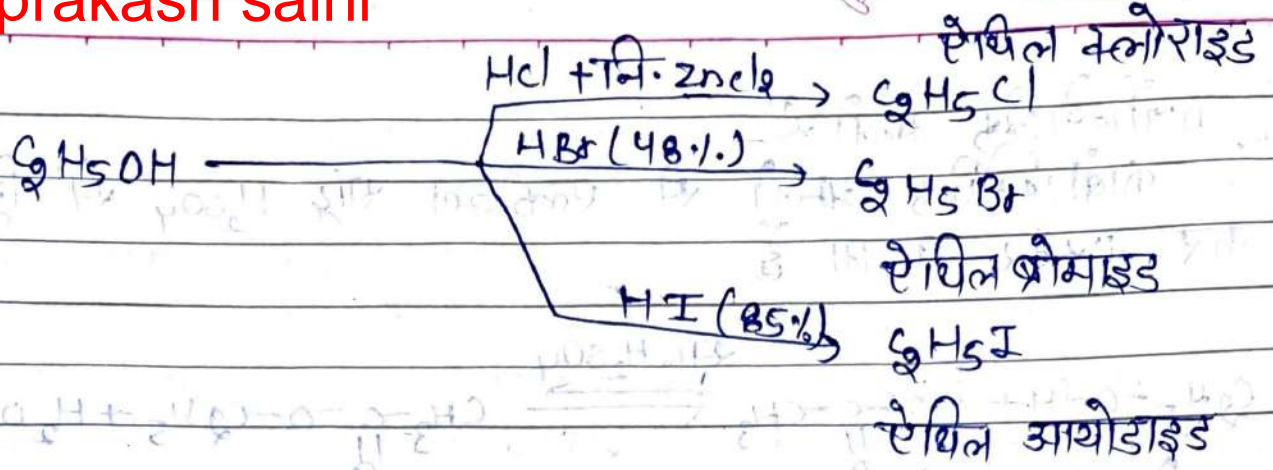 prakash saini
ऐथिल क्लोराइड
HCl + नि. ZnCl2 → C2H5Cl
C2H5OH
HBr (48%) → C2H5Br
ऐथिल ब्रोमाइड
HI (85%) → C2H5I
ऐथिल आयोडाइड